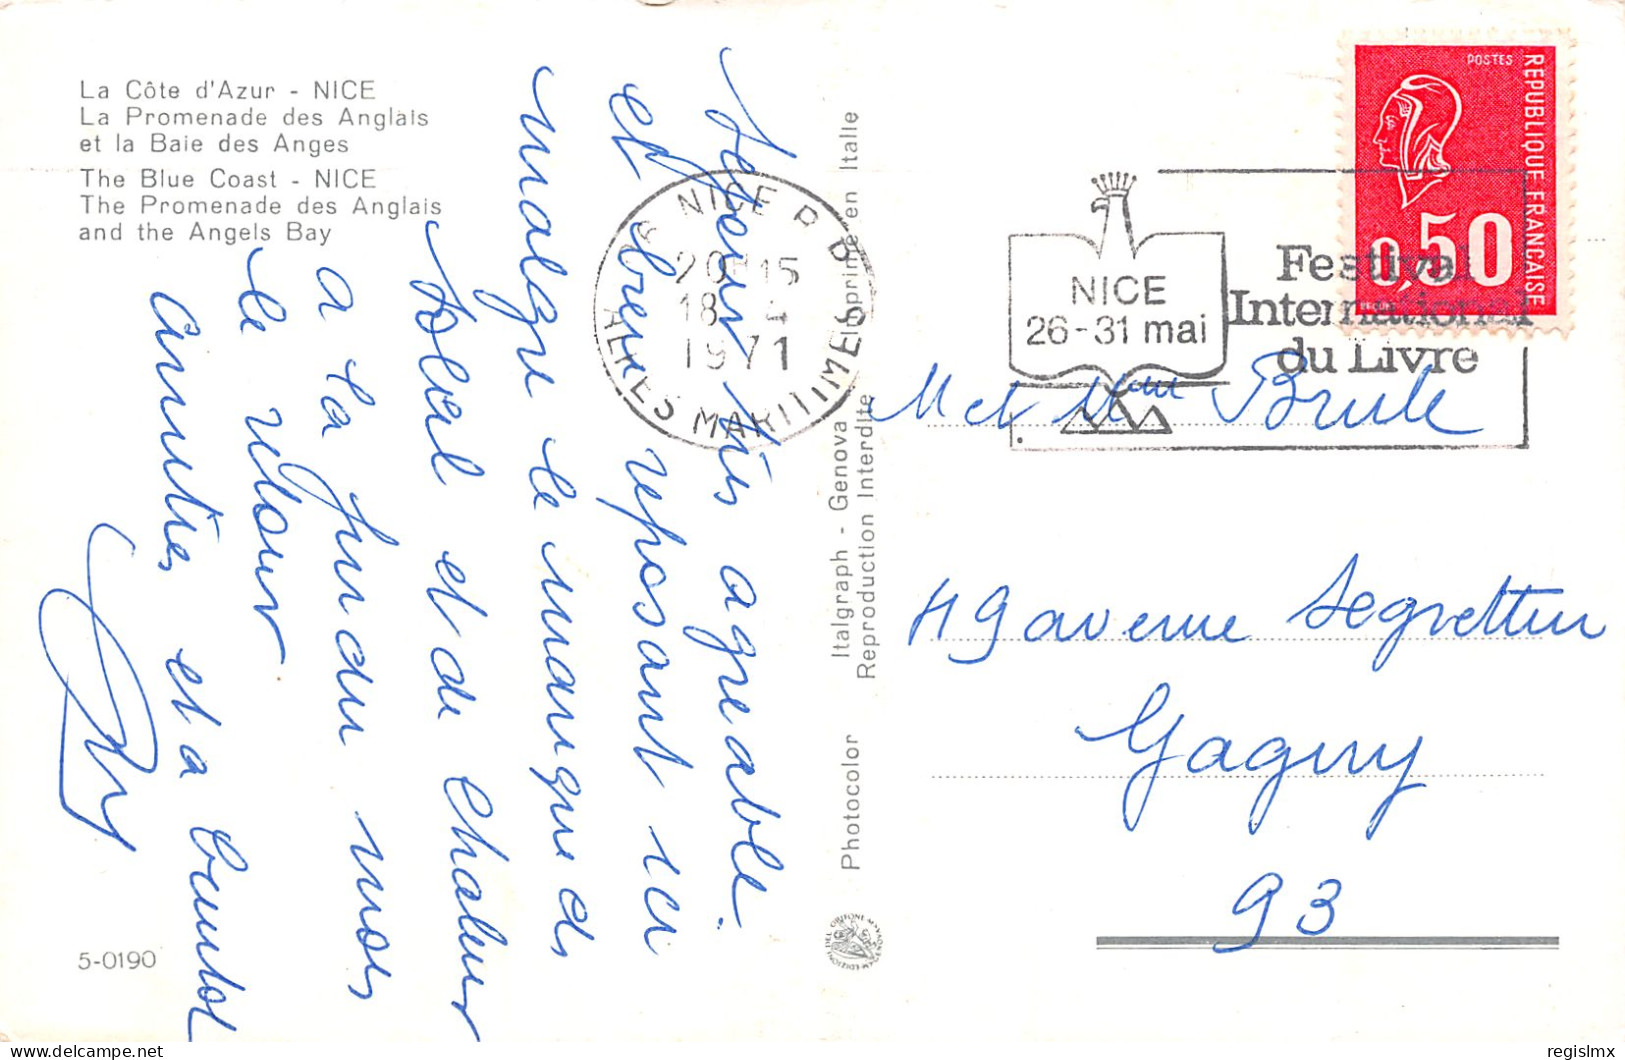 La Côte d'Azur - NICE
La Promenade des Anglais
et la Baie des Anges
The Blue Coast - NICE
The Promenade des Anglais
and the Angels Bay
Séjour très agréable.
et bien reposant ici
malgré le manque de
soleil et de chaleur
a la fin du mois
le retour
Amitiés et a bientot
5-0190
Photocolor
Italgraph - Genova
Imprimé en Italie
Reproduction Interdite
06 NICE R P
20H15
18 - 4
1971
ALPES MARITIMES
NICE
26-31 mai
Festival
International
du Livre
POSTES
REPUBLIQUE FRANCAISE
0,50
M et Mme Brule
49 avenue Segretten
Gagny
93
regislmx